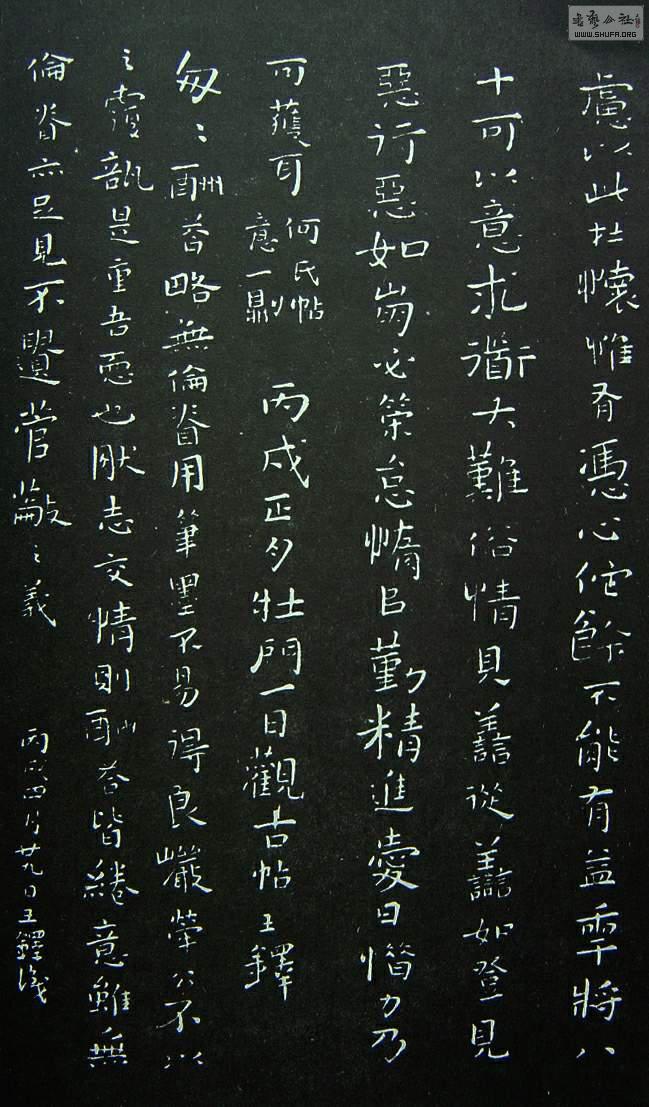 慮以此壯懷惟有憑心佗餘不能有益年將八
十可以意求道大難俗情見善從善如登見
惡行惡如崩必策怠惰以勤精進愛日惜力乃
可獲耳 何氏帖
意一則
丙戌正月杜門一日觀古帖王鐸
匆匆酬荅略無倫眷用筆墨不易得良巖犖公不以
之覆瓿是重吾慝也厥志交情則酬荅皆綣意雖無
倫眷亦足見不遺菅蔽之義
丙戌四月廿九日王鐸識
書藝公社
WWW.SHUFA.ORG